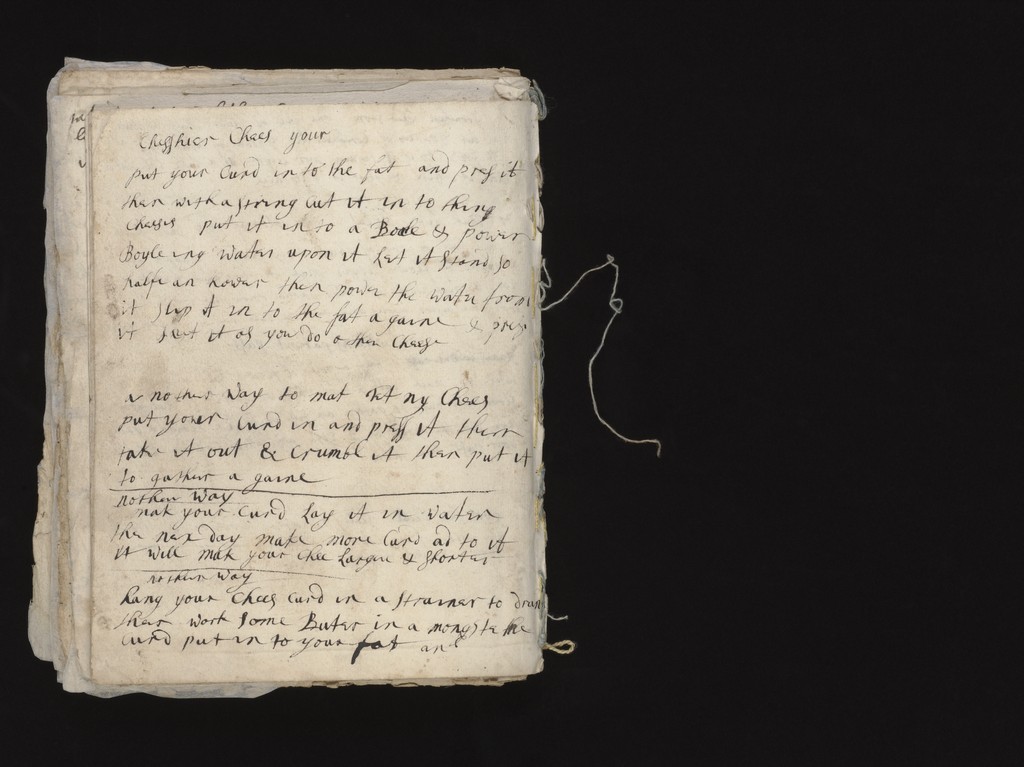 Chesshier Chees your
put your Curd in to the fat and press it
then with a string cut it in to thing
Cheeses put it in to a Bole & power
Boyleing water upon it Let it stand so
halfe an hower then power the water from
it slip it in to the fat a gaine & press
it salt it as you do other Cheese
a nother way to mak Chees
put your Curd in and press it then
take it out & Crumbl it then put it
to gather a gaine
nother way
mak your Curd Lay it in water
the nex day make more Curd ad to it
it will mak your Chee Larger & shorter
nother way
hang your Chees Curd in a strainer to dran
then work some Buter in a mongste the
Curd put in to your fat and